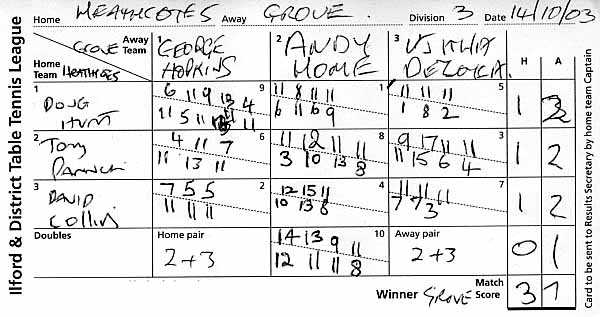 Ilford & District Table Tennis League
Home HEATHCOTES Away GROVE. Division 3 Date 14/10/03
GROVE Away Team
Home Team HEATHCOTES
1 GEORGE HOPKINS
2 ANDY HOME
3
H A
1 DOUG HUNT
6 11 9 4 9
11 5 11 11
11 8 11 11 1
6 11 6 9
11 11 11 5
1 8 2
1 2
2 TONY
4 11 7 6
11 13 11
11 12 11 11 8
3 10 13 8
9 17 11 11 3
11 15 6 4
1 2
3 DAVID COLLIN
7 5 5 2
11 11 11
12 15 11 4
10 13 8
11 11 11 7
7 7 3
1 2
Doubles
Home pair
2+3
14 13 9 11 10
12 11 11 8
Away pair
2+3
0 1
Winner GROVE
Match Score 3 7
Card to be sent to Results Secretary by home team Captain